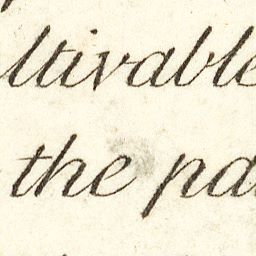 ltivable
the pa